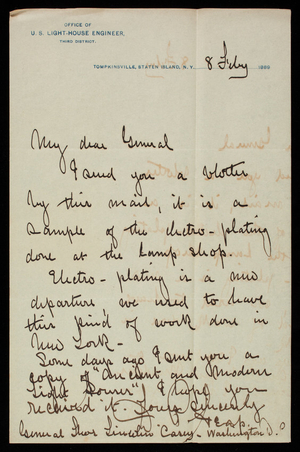 OFFICE OF
U. S. LIGHT-HOUSE ENGINEER,
THIRD DISTRICT.
TOMPKINSVILLE, STATEN ISLAND, N.Y. 8 Feby 1889
My dear General
I send you a blotter
by this mail, it is a
sample of the electro-plating
done at the Lamp shop.
Electro-plating is a new
departure we used to have
this kind of work done in
New York-
Some days ago I sent you a
copy of "Ancient and Modern
Light Houses" I hope you
received it. Yours sincerely
General Thos Lincoln Casey- Washington D.C